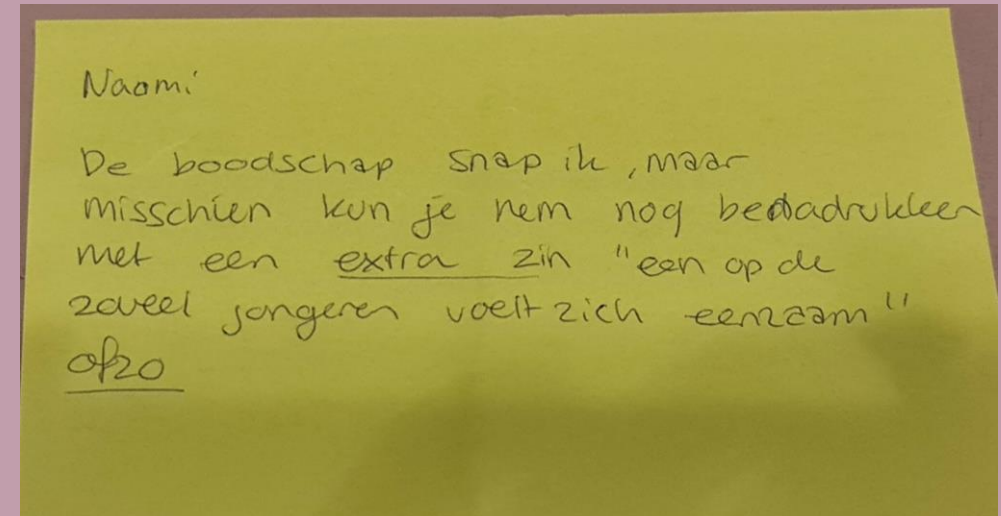 Naomi
De boodschap snap ik, maar
misschien kun je hem nog benadrukken
met een extra zin "een op de
zoveel jongeren voelt zich eenzaam"
ofzo